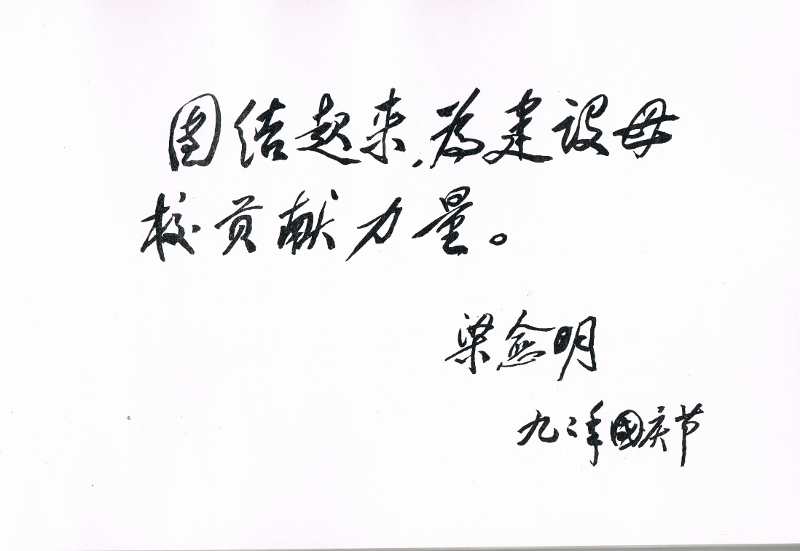 团结起来,为建设母
校贡献力量。
梁念明
九二年國庆节